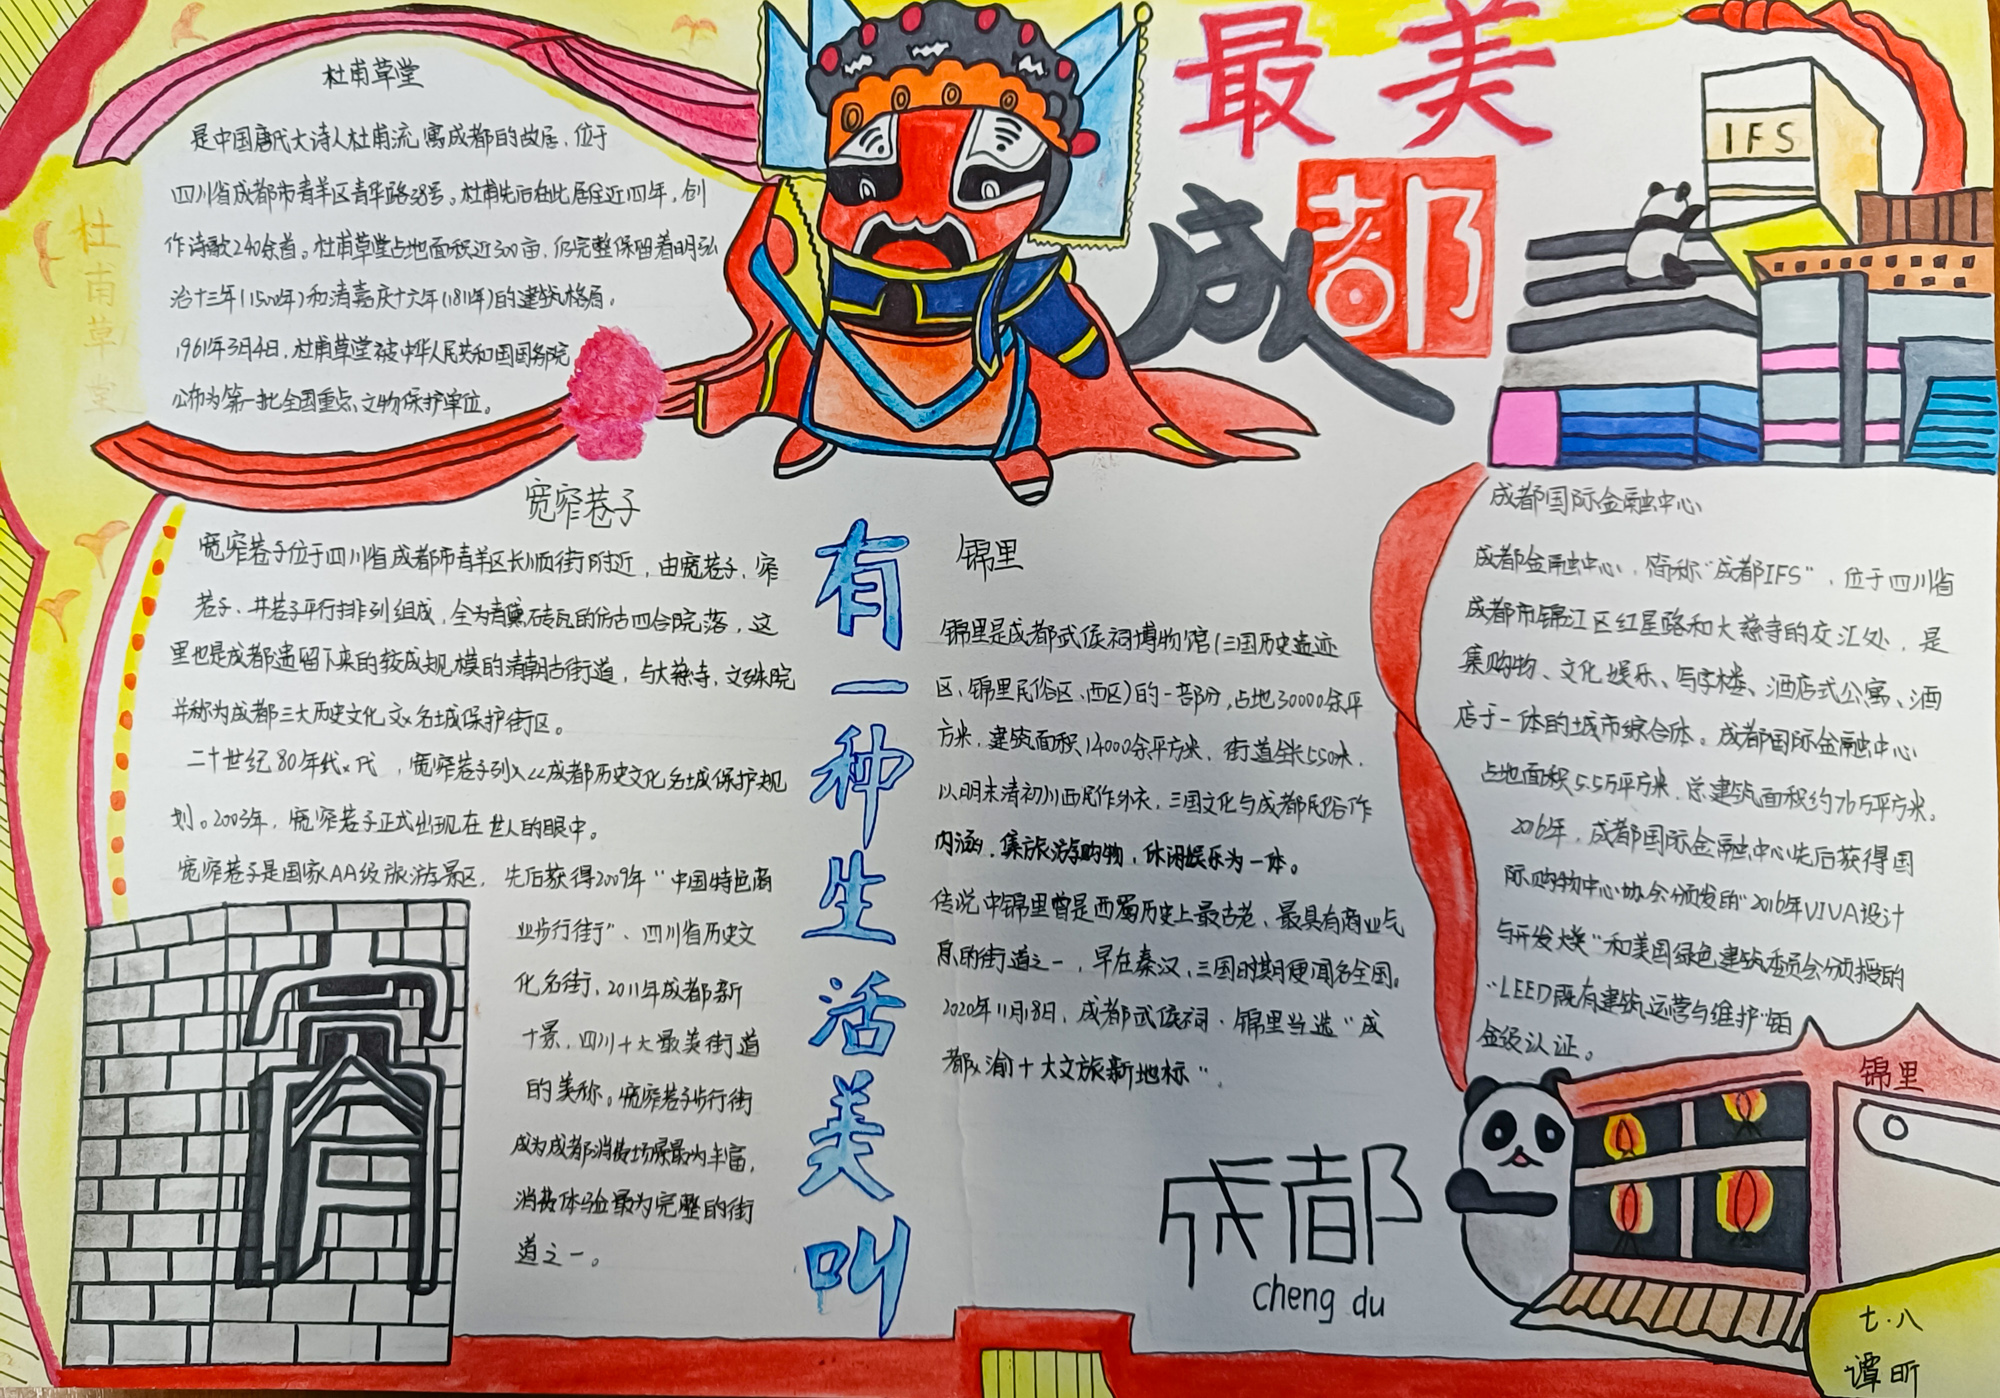 最美
成都
IFS
杜甫草堂
杜甫草堂
是中国唐代大诗人杜甫流寓成都的故居，位于
四川省成都市青羊区青华路38号。杜甫先后在此居住近四年，创
作诗歌240余首。杜甫草堂占地面积近300亩，仍完整保留着明弘
治十三年(1500年)和清嘉庆十六年(1811年)的建筑格局。
1961年3月4日，杜甫草堂被中华人民共和国国务院
公布为第一批全国重点文物保护单位。
宽窄巷子
宽窄巷子位于四川省成都市青羊区长顺街附近，由宽巷子、窄
巷子、井巷子平行排列组成，全为青黛砖瓦的仿古四合院落，这
里也是成都遗留下来的较成规模的清朝古街道，与大慈寺，文殊院
并称为成都三大历史文化名城保护街区。
二十世纪80年代，宽窄巷子列入《成都历史文化名城保护规
划。2003年，宽窄巷子正式出现在世人的眼中。
宽窄巷子是国家AA级旅游景区，先后获得2009年“中国特色商
业步行街”、四川省历史文
化名街、2011年成都新
十景，四川十大最美街道
的美称。宽窄巷子步行街
成为成都消费场景最为丰富，
消费体验最为完整的街
道之一。
有一种生活美叫
锦里
锦里是成都武侯祠博物馆(三国历史遗迹
区、锦里民俗区、西区)的一部分，占地30000余平
方米，建筑面积14000余平方米，街道全长550米，
以明末清初川西民作外衣，三国文化与成都民俗作
内涵，集旅游购物，休闲娱乐为一体。
传说中锦里曾是西蜀历史上最古老、最具有商业气
息的街道之一，早在秦汉、三国时期便闻名全国。
2020年11月18日，成都武侯祠·锦里当选“成
都渝十大文旅新地标”。
成都国际金融中心
成都金融中心，简称“成都IFS”，位于四川省
成都市锦江区红星路和大慈寺的交汇处，是
集购物、文化娱乐、写字楼、酒店式公寓、酒
店于一体的城市综合体。成都国际金融中心
占地面积5.5万平方米，总建筑面积约76万平方米。
2016年，成都国际金融中心先后获得国
际购物中心协会颁发的“2016年VIVA设计
与开发奖”和美国绿色建筑委员会颁授的
“LEED既有建筑运营与维护”铂
金级认证。
成都
cheng du
锦里
七.八
谭昕